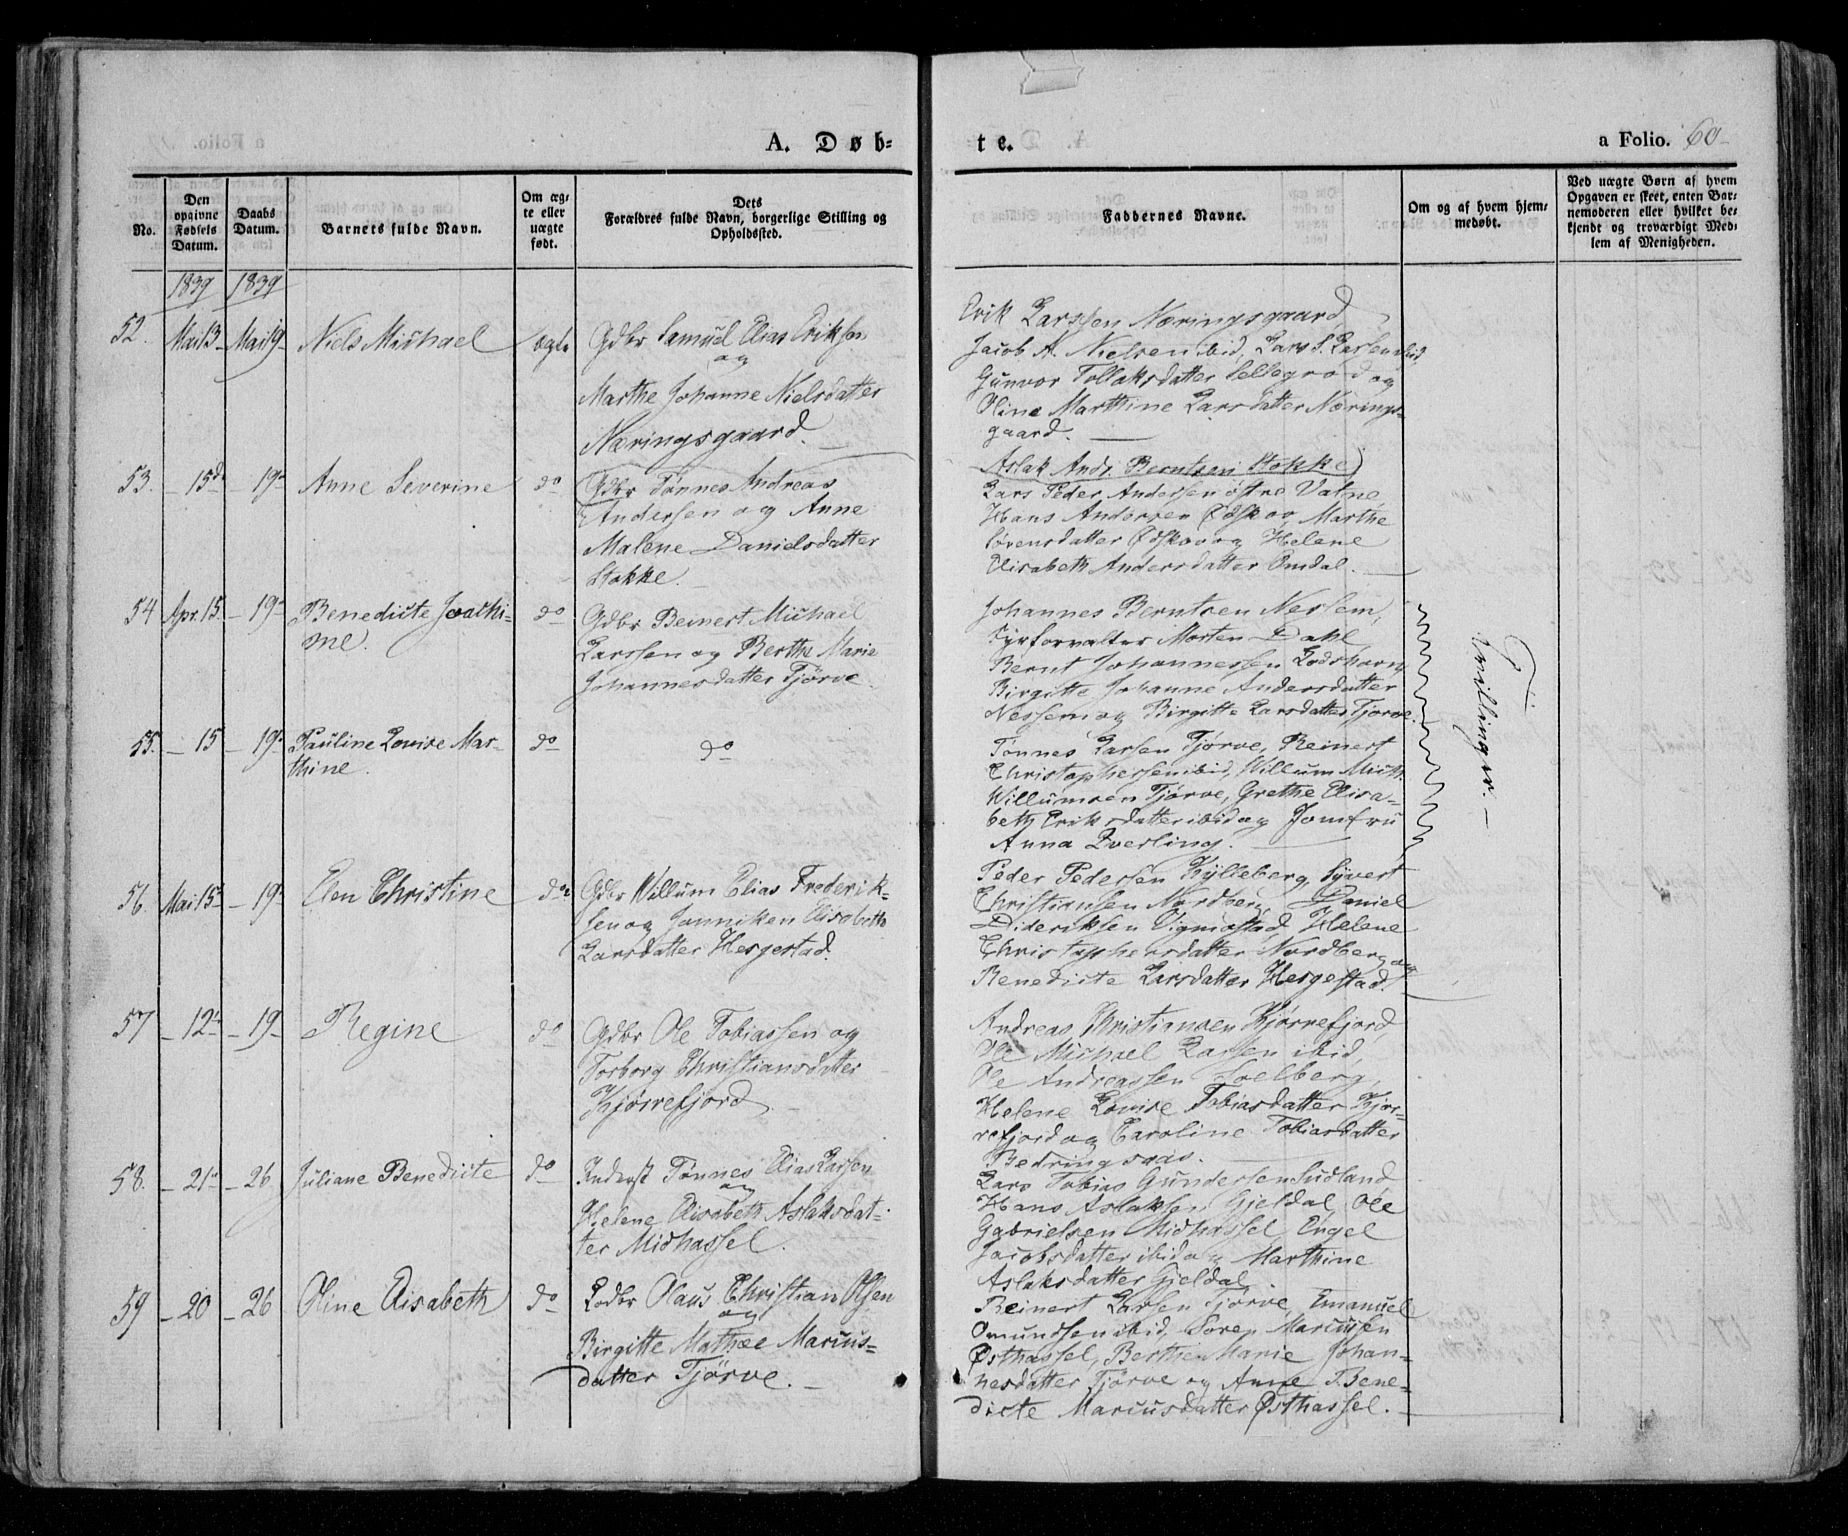 A. Døb-
te.
a Folio. 60
No.
Den opgivne Fødsels Datum.
Daabs Datum.
Barnets fulde Navn.
Om ægte eller uægte født.
Dets
Forældres fulde Navn, borgerlige Stilling og
Opholdssted.
Faddernes Navne.
Om og af hvem hjemmedøbt.
Ved uægte Børn af hvem
Opgaven er skeet, enten Bar-
nemoderen eller hvilket be-
kjendt og troværdigt Med-
lem af Menigheden.
1839 1839
52. Mai 13 Mai 19 Niels Michael ægte
Gdbr Samuel Elias Eriksen
og
Marthe Johanne Nielsdatter
Næringsgaard.
Erik Larssen Næringsgaard,
Jacob A. Nielsen ibid, Lars S. Larsen ibid,
Gunvor Tollaksdatter Sellegrod og
Oline Marthine Larsdatter Nærings-
gaard.
53. 15de 19 Anne Severine do
Gdbr Tønnes Andreas
Andersen og Anne
Malene Danielsdatter
Stokke.
Aslak Andr. Berntsen Stokke,
Lars Peder Andersen østre Vatne,
Hans Andersen Ødskov, Marthe
Sørensdatter Ødskov og Helene
Elisabeth Andersdatter Omdal.
54 Apr. 15 19 Benedicte Joachi-
me.
do
Gdbr Reinert Michael
Larssen og Berthe Marie
Johannesdatter Tjörve.
Johannes Berntsen Nessem,
Fyrforvalter Morten Dahl,
Bernt Johannessen Lodshavn,
Birgitte Johanne Andersdatter
Nessem og Birgitte Larsdatter Tjørve.
Tvillinger.
55. 15 19 Pauline Lovise Mar-
thine.
do
do
Tønnes Larsen Tjørve, Reinert
Christophersen ibid, Willum Mich.
Willumsen Tjørve, Grethe Elisa-
beth Eriksdatter ibid og Jomfru
Anna Qverling.
56. Mai 15 19 Elen Christine do
Gdbr Willum Elias Frederik-
sen og Janniken Elisabeth
Larsdatter Hesgestad.
Peder Pedersen Kylleberg, Syvert
Christiansen Nordberg, Daniel
Dideriksen Vigmostad, Helene
Christophersdatter Nordberg og
Benedicte Larsdatter Hesgestad.
57 12te 19 Regine do
Gdbr Ole Tobiassen og
Torborg Christiansdatter
Kjørrefjord
Andreas Christiansen Kjørrefjord,
Ole Michael Larsen ibid,
Ole Andreassen Soelberg,
Helene Lovise Tobiasdatter Kjør-
refjord og Caroline Tobiasdatter
Bedringsaas.
58. 21de 26 Juliane Benedicte do
Inderst Tønnes Elias Larsen
og
Helene Elisabeth Aslaksdat-
ter Midhassel.
Lars Tobias Gundersen Sudland,
Hans Aslaksen Gjeldal, Ole
Gabrielsen Midhassel, Engel
Jacobsdatter ibid og Marthine
Aslaksdatter Gjeldal.
59 20 26 Oline Elisabeth do
Lodbr Olaus Christian Olsen
og
Birgitte Mathæe Marcus-
datter Tjörve.
Reinert Larsen Tjørve, Emanuel
Omundsen ibid, Soren Marcussen
Østhassel, Berthe Marie Johan-
nesdatter Tjørve og Anne T. Bene-
dicte Marcusdatter Østhassel.